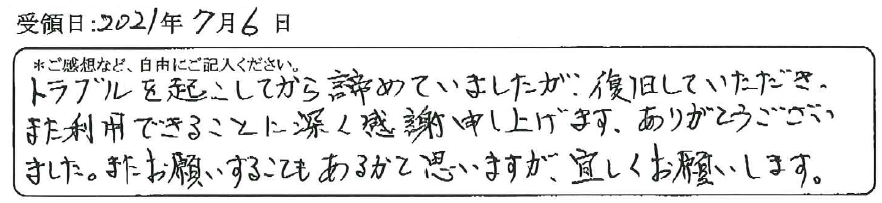 受領日:2021年7月6日
*ご感想など、自由にご記入ください。
トラブルを起こしてから諦めていましたが、復旧していただき、
また利用できることに深く感謝申し上げます。ありがとうござい
ました。またお願いすることもあるかと思いますが、宜しくお願いします。